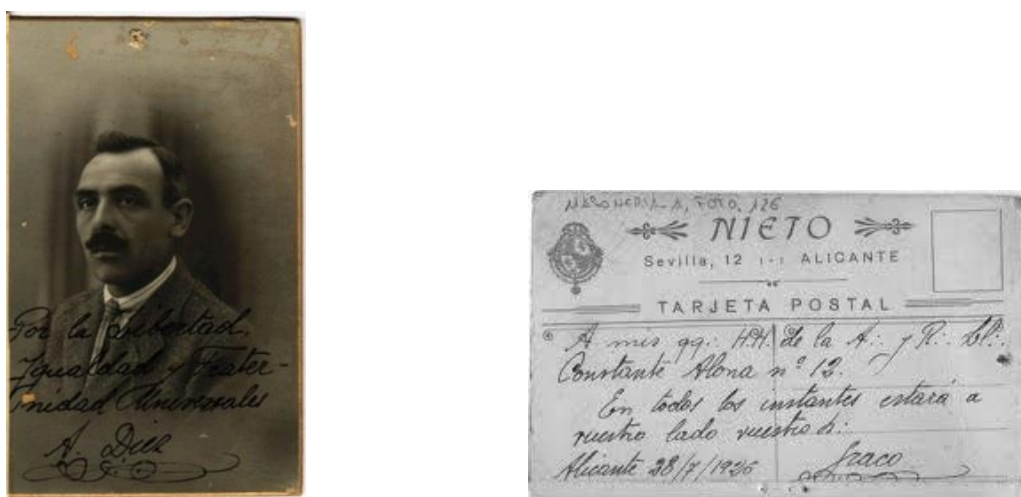 Por la Libertad,
Igualdad y Frater-
nidad Universales
A. Diez
MASONERIA A, FOTO, 126
NIETO
Sevilla, 12 ALICANTE
TARJETA POSTAL
A mis qq∴ HH∴ de la A∴ y R∴ Ll∴
Constante Alona nº 12.
En todos los instantes estará a
vuestro lado vuestro h∴
Graco
Alicante 28/7/1926